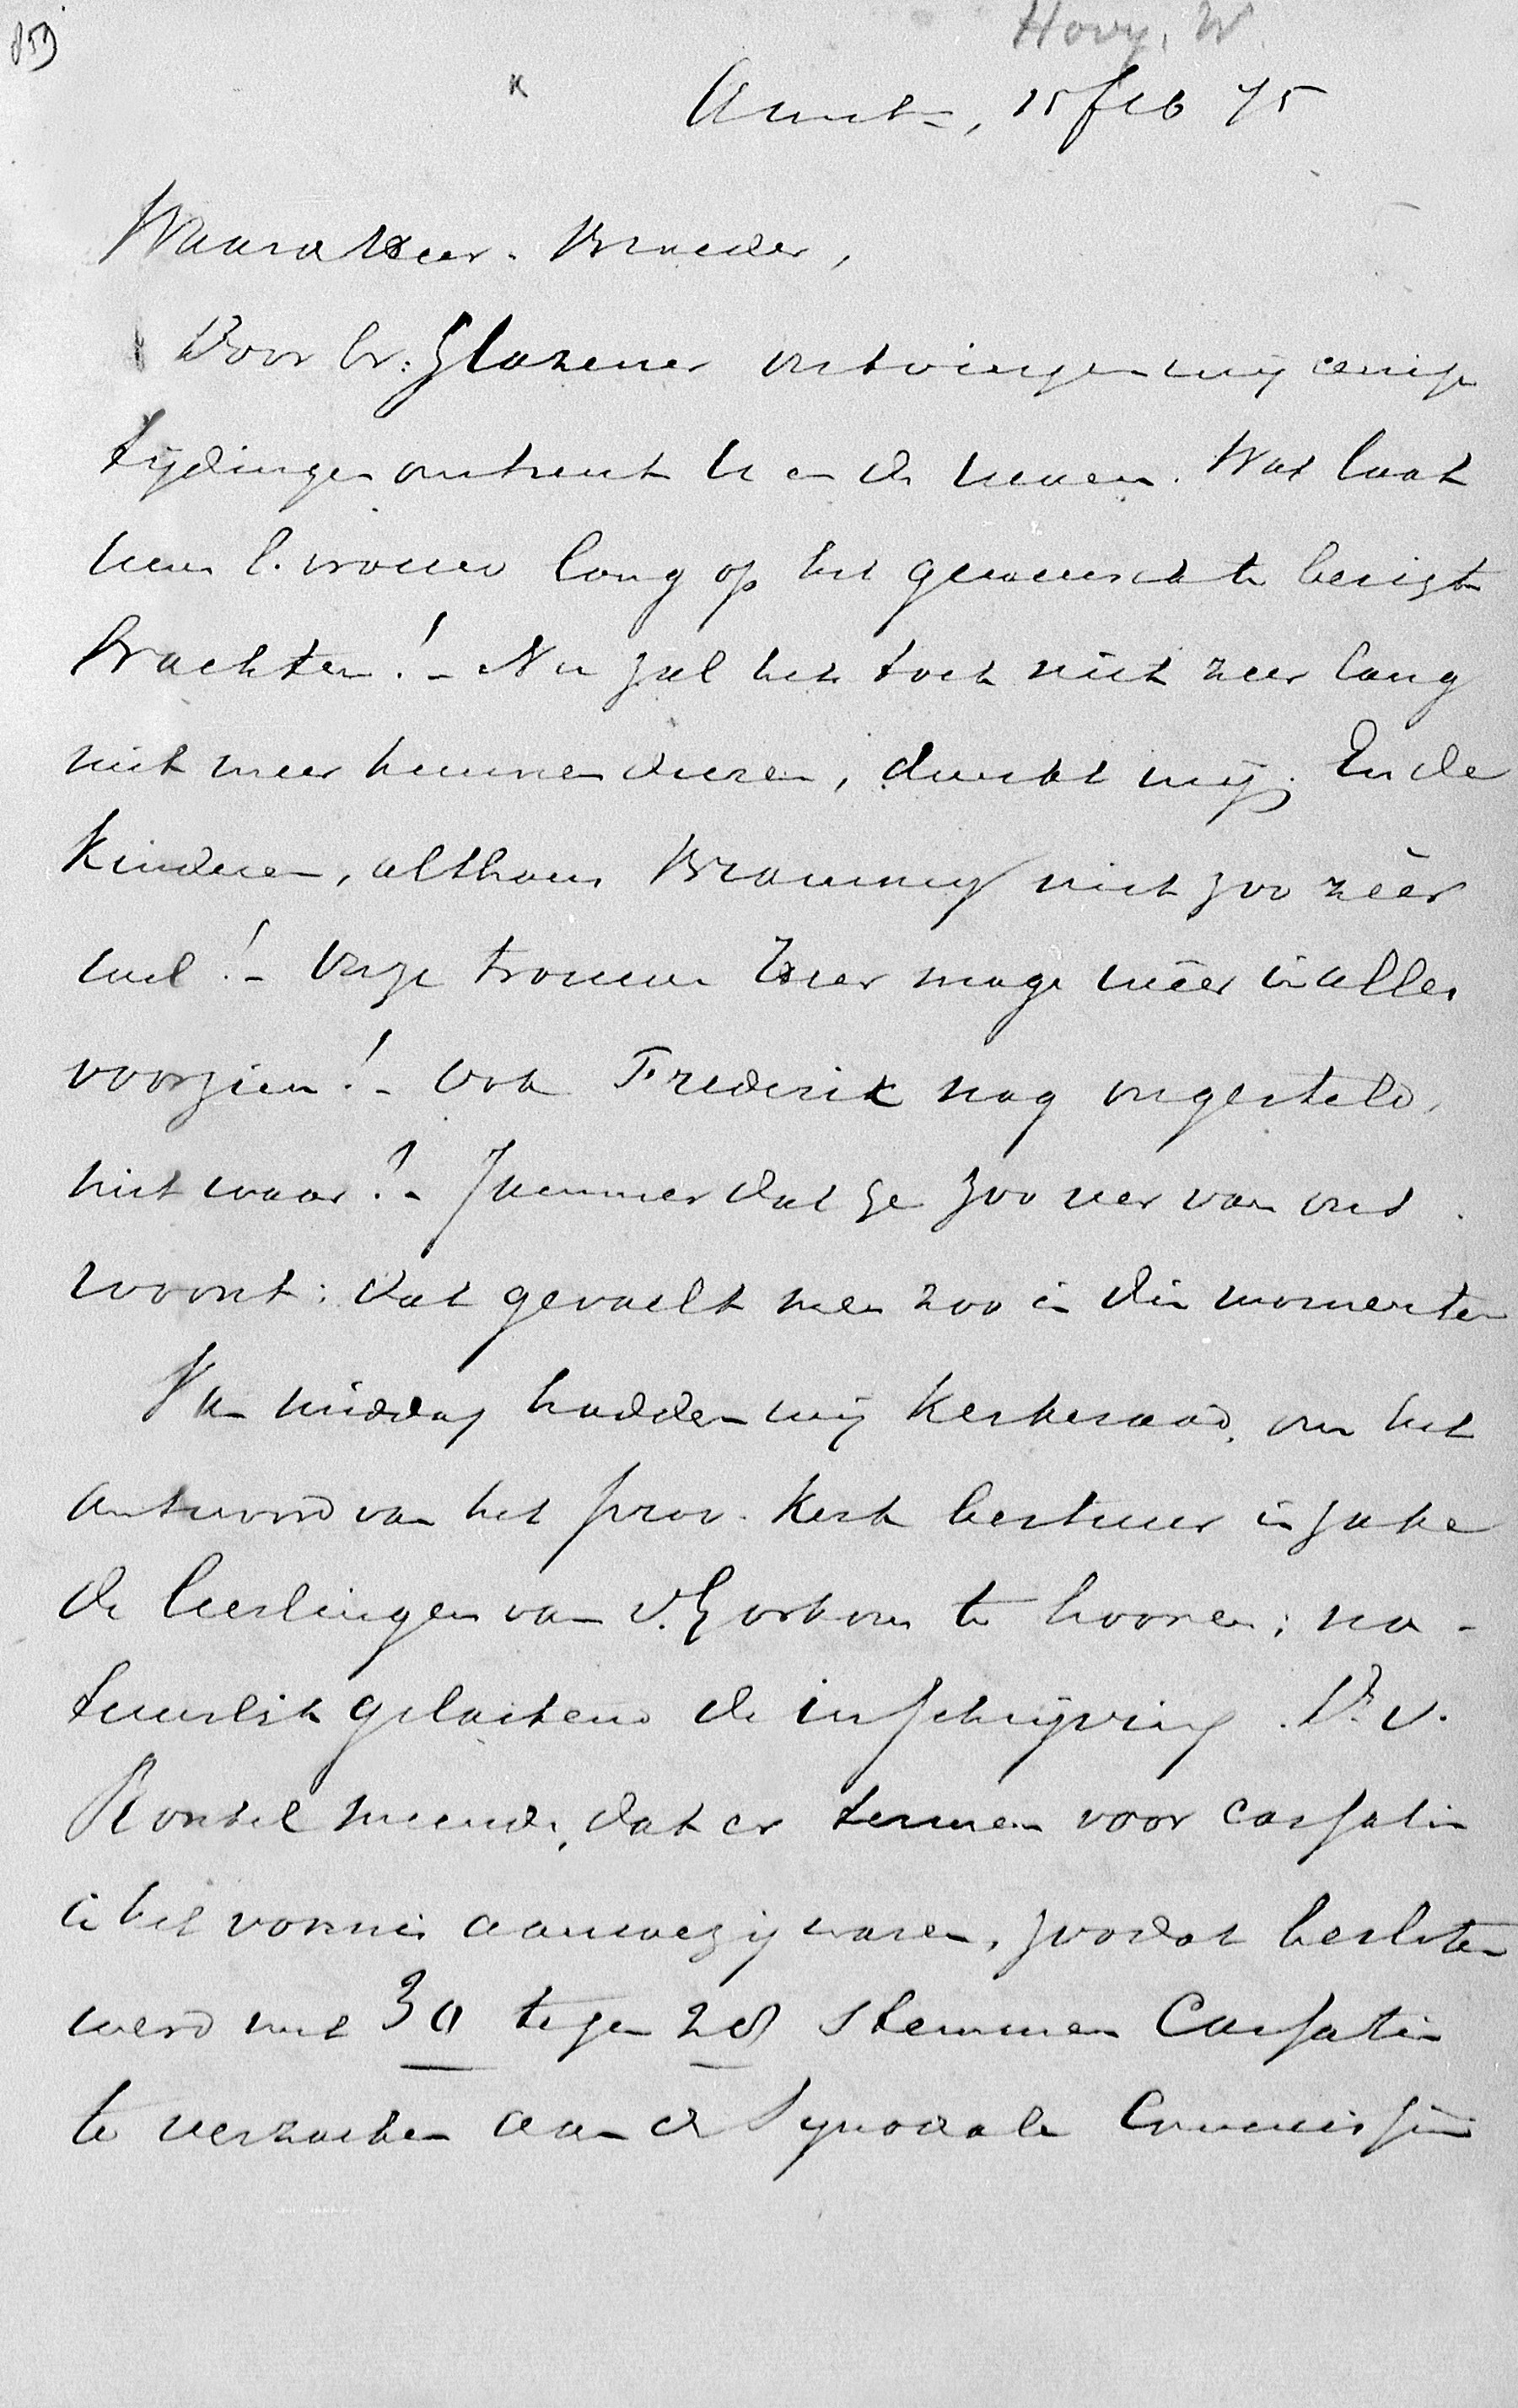 859
Hovy, W.
Amst=, 15 feb 75
Waarde Heer & Broeder,
Door br: Glazener ontvingen wij eenige
tijdingen omtrent U en de uwen. Wat laat
uwe l. vrouw lang op het gewenschte berigt
wachten! - Nu zal het toch niet zeer lang
niet meer kunnen duren, dunkt mij. En de
kinderen, althans Brammy niet zoo zéér
wel! - Onze trouwe Heer moge uwer in alles
voorzien! - Ook Frederik nog ongesteld,
niet waar? - Jammer dat ge zoo ver van ons
woont: dat gevoelt men zoo in die momenten
Van middag hadden wij kerkeraad, om het
antwoord van het prov. kerkbestuur in zake
de leerlingen van v. Gorkom te hooren; na-
tuurlijk gelastend de inschrijving. Dr. v.
Ronkel meende, dat er termen voor cassatie
in het vonnis aanwezig waren, zoodat besloten
werd met 30 tegen 28 stemmen Cassatie
te verzoeken aan de Synodale Commissie